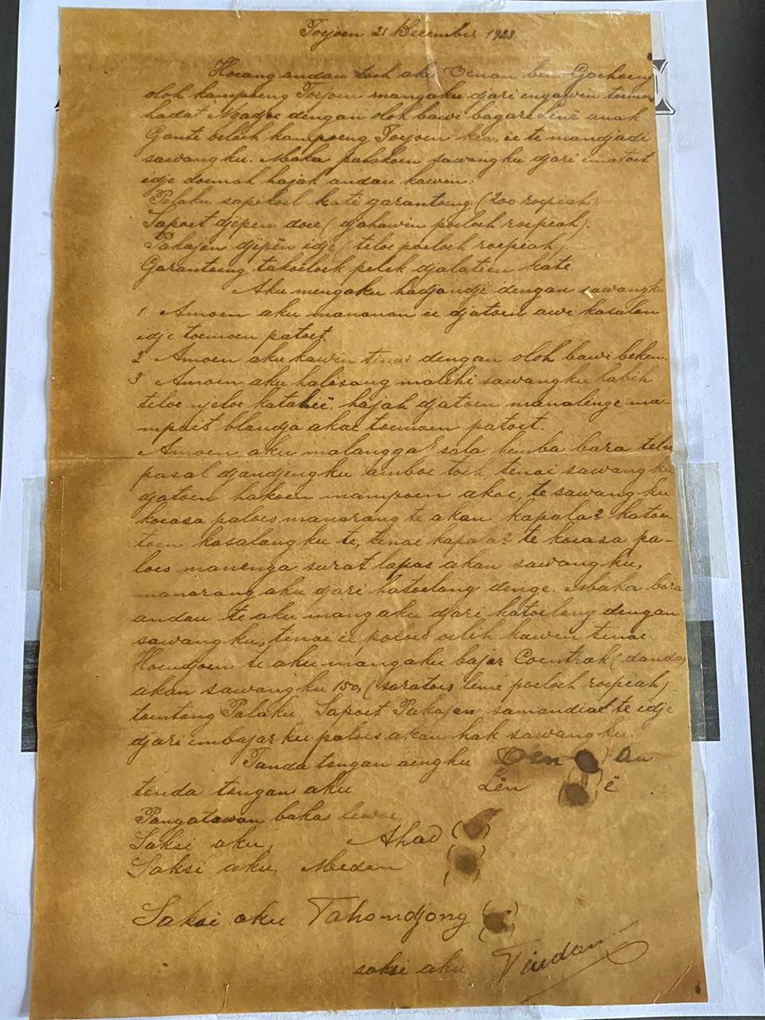 Toejoen 21 December 1923
Hoeang andau toch aku Oenan bin Goehoeng
oloh kampoeng Toejoen mangaku djari engawin toemon
hadat Ngadjoe dengan oloh bawi bagare Lënë anak
Gante beloeh kampoeng Toejoen kea, ie te mandjadi
sawangku. Maka palakoen sawangku djari imatoet
idje doemah hajak andau kawin.
Palaku sapikoel kati garantoeng (200 roepiah)
Sapoet djipen doee (djahawen poeloeh roepiah)
Pakajan djipën idje (teloe poeloeh roepiah)
Garantoeng takoeloek pelek djalatien kate
Aku mengaku badjandji dengan sawangku
1 Amoen aku mananan ie djatoen awi kasalan
idje toemoen patoet.
2 Amoen aku kawin tinai dengan oloh bawi beken
3 Amoen aku halisang malihi sawangku labih
teloe njeloe katahië, hajak djatoen manalenge ma-
mpait blandja akae toemoen patoet.
Amoen aku malanggar sala hemba bara telu
pasal djandjingku amboe toch, tinai sawangku
djatoen hakoen mampoen akoe, te sawangku
koeasa paloes manarang te akan kapala2 katoe-
toen kasalangku te, tinai kapala2 te koeasa pa-
loes manenga surat lapas akan sawangku,
manarang aku djari hatoelang denge. Maka bara
andau te aku mangaku djari hatoelang dengan
sawangku, tinai ie poloes oeleh kawin tinai.
Hoendjoen te aku mangaku bajar Coentrak (danda)
akan sawangku 150, (saratoes lime poeloeh roepiah)
tomtong Palaku Sapoet Pakajan samandiai te idje
djari imbajar ku paloes akan hak sawangku.
Tanda tengan aingku Oen an
tenda tengan aku Lën ë
Pangatawan bakas lewoe
Saksi aku, Ahad
Saksi aku, Medan
Saksi aku Tahondjong
saksi aku Tindan